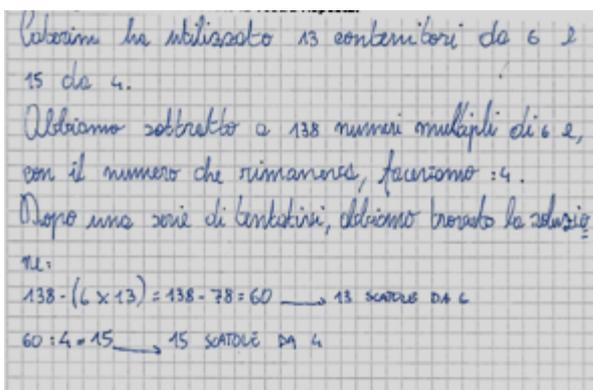 Caterina ha utilizzato 13 contenitori da 6 e
15 da 4.
Abbiamo sottratto a 138 numeri multipli di 6 e,
con il numero che rimaneva, facevamo :4.
Dopo una serie di tentativi, abbiamo trovato la soluzio
ne:
138-(6x13)=138-78=60 → 13 SCATOLE DA 6
60:4=15 → 15 SCATOLE DA 4